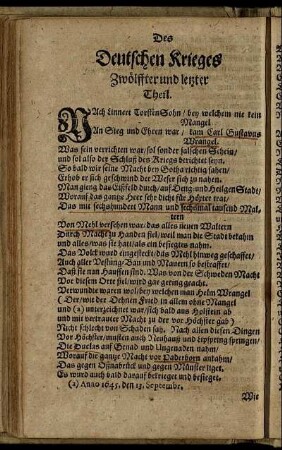 Des
Deutschen Krieges
Zwölffter und letzter
Theil.
NAch Linnert TorstånSohn / bey welchem nie kein
Mangel
An Sieg und Ehren war / kam Carl Gustavus
Wrangel.
Was sein verrichten war / sol sonder falschen Schein /
und sol also der Schluß des Kriegs berichtet seyn.
So bald wir seine Macht den Goth richtig sahen /
Erhob er sich geschwind der Weser sich zu nahen.
Man gieng das Eißfeld durch / auf Deng- und Heilgen Stadt /
Worauf das gantze Heer sehr dichte für Höxter trat /
Das mit sechshundert Mann und sechsmal tausend Mal-
tern
Von Mehl versehen war: das alles neuen Waltern
Durch Macht in Handen fiel / weil man die Stadt bekahm
und alles / was sie hat / als ein besiegten nahm.
Das Volck ward eingesteckt; das Mehl hinweg geschaffet /
Auch aller Vestung-Bau und Mauren so bestraffet /
Daß sie nun Hauffen sind. Was von der Schweden Macht
Vor diesem Orte fiel / ward gar gering geacht.
Verwundte waren wol / bey welchen man Helm Wrangel
(Der / wie der Dehnen Friede in allem ohne Mangel
und (a) unterzeichnet war / sich bald aus Holstein ab
und mit vertrauter Macht zu der vor Höchster gab)
Nicht schlecht von Schaden sah. Nach allen diesen Dingen
Vor Höchster / musten auch Neuhauß und Lipspring springen /
Die Duelas auf Gnad und Ungenaden nahm /
Worauf die gantze Macht vor Paderborn ankahm /
Das gegen Oßnabrück und gegen Münster liget.
Es ward auch bald darauf bekrieget und besieget.
(a) Anno 1645. den 13. Septembr.
Wie